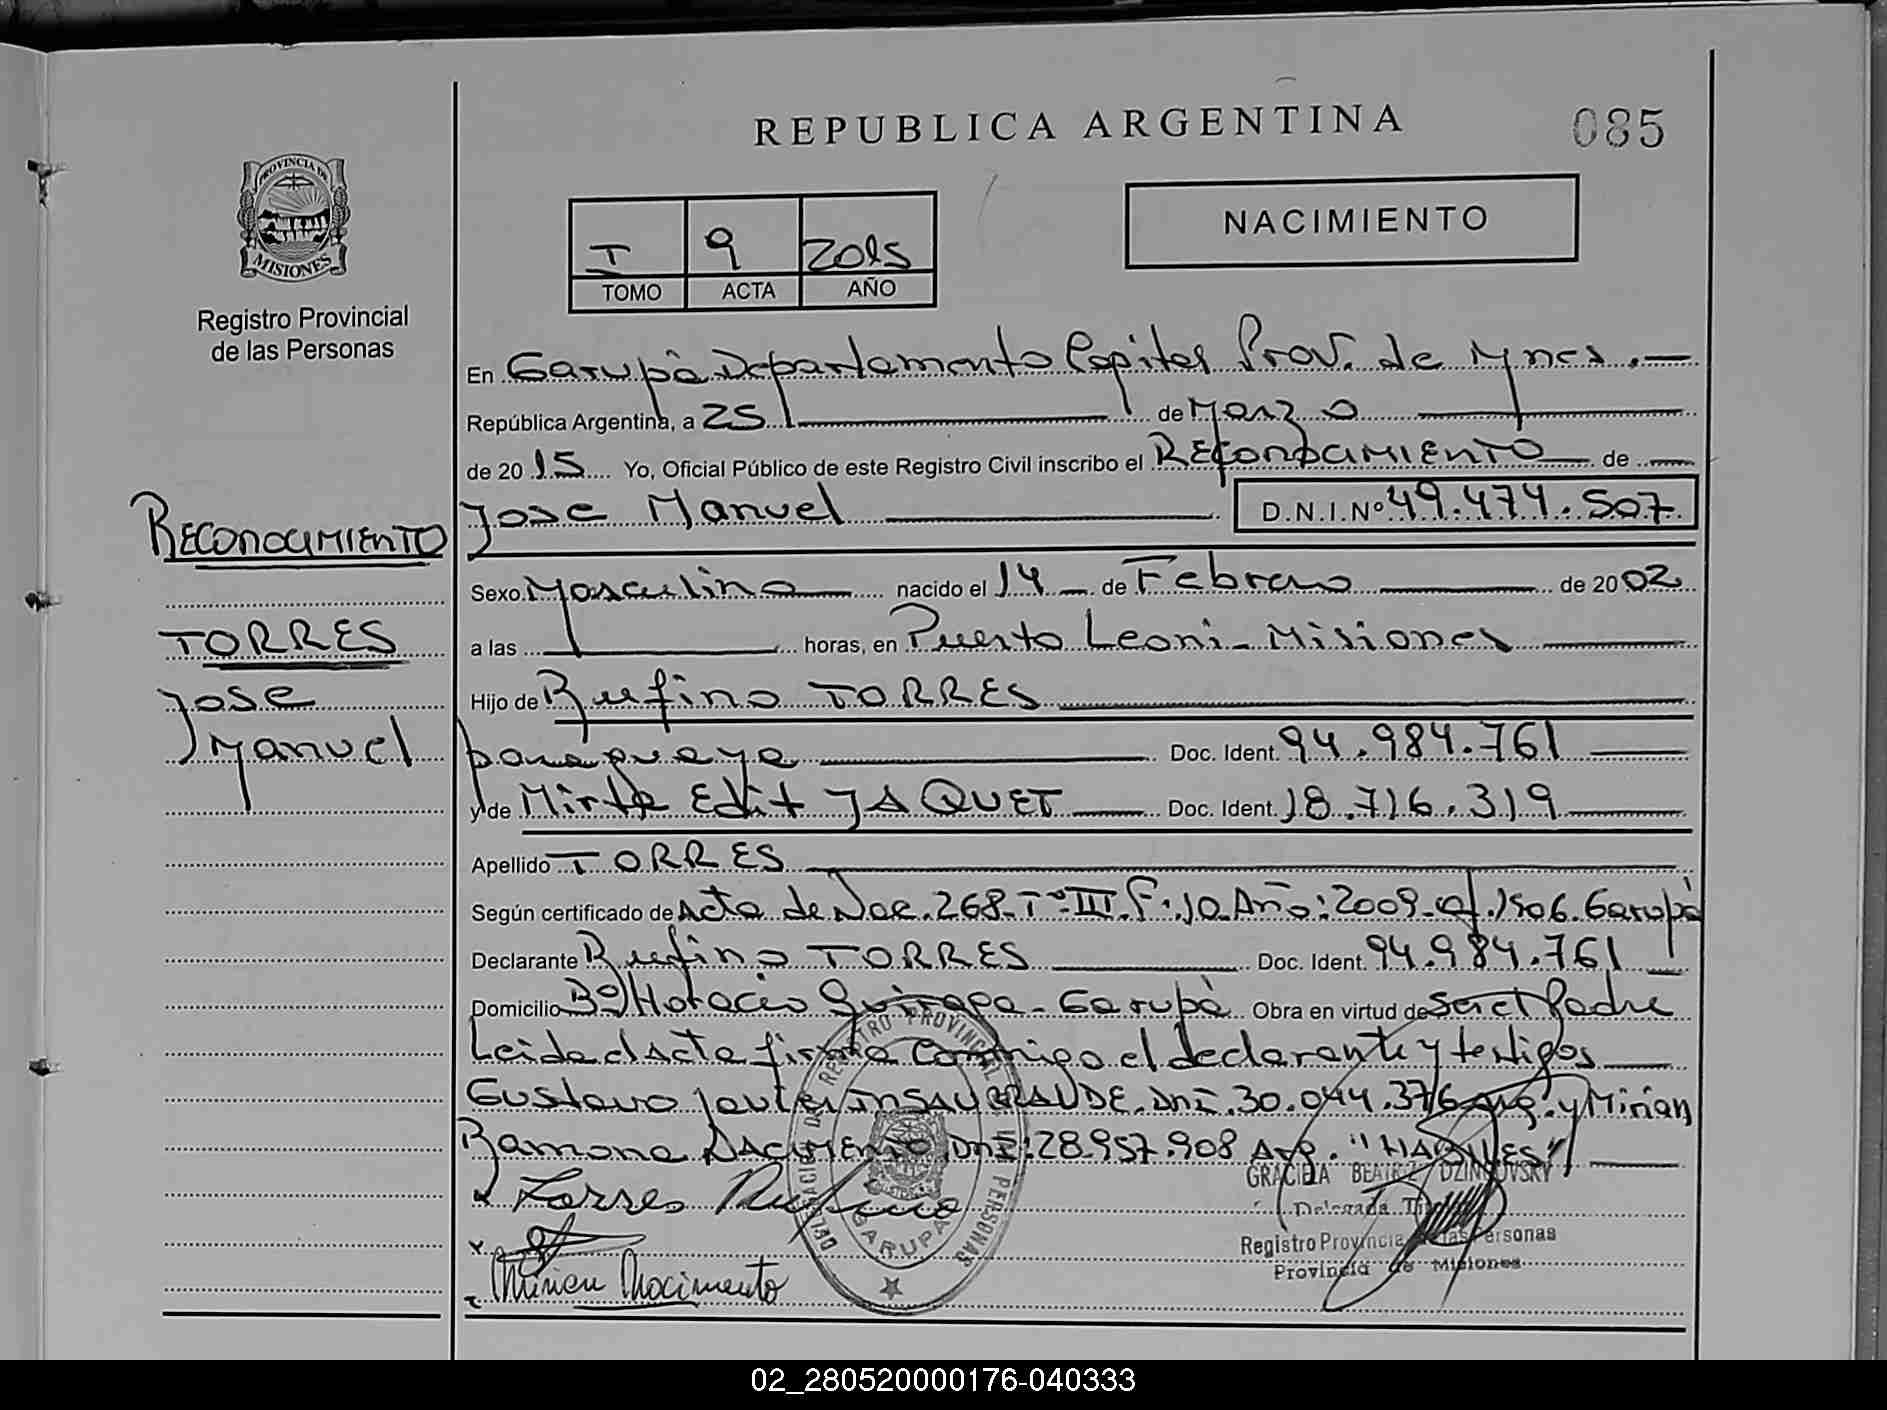 REPUBLICA ARGENTINA
085
PROVINCIA DE
MISIONES
Registro Provincial
de las Personas
NACIMIENTO
I 9 2015
TOMO ACTA AÑO
En Garupà Departamento Capital Prov. de Mnes.
República Argentina, a 25 de Marzo
de 2015 Yo, Oficial Público de este Registro Civil inscribo el RECONOCIMIENTO de
Jose Manuel D.N.I.Nº 49.474.507
RECONOCIMIENTO
TORRES
Jose
Manuel
Sexo Masculino nacido el 14 de Febrero de 2002
a las horas, en Puerto Leoni - Misiones
Hijo de Rufino TORRES
paraguaya Doc. Ident. 94.984.761
y de Mirta Edit JAQUET Doc. Ident. 18.716.319
Apellido TORRES
Según certificado de Acta de Nac. 268-Tº III F. 10 Año: 2009-of. 1506. Garupà
Declarante Rufino TORRES Doc. Ident. 94.984.761
Domicilio Bº Horacio Quiroga - Garupà Obra en virtud de Ser el Padre
Leida el Acta firma conmigo el declarante y testigos
Gustavo Javier INSAURRALDE. DNI. 30.044.376 Arg. y Mirian
Ramona NACIMIENTO DNI: 28.957.908 Arg.
Torres Rufino
Mirian Nacimiento
DELEGACION DEL REGISTRO PROVINCIAL DE LAS PERSONAS
GARUPA
GRACIELA BEATRIZ
Delegada Titular
Registro Provincial de las Personas
Provincia de Misiones
02_280520000176-040333